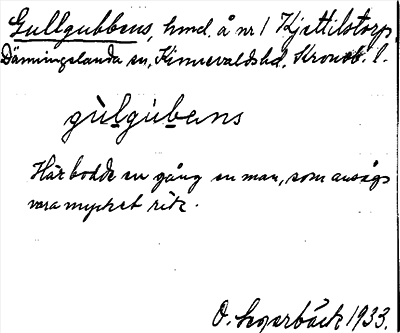 Gullgubbens, hmd. å nr 1 Kjettilstorp,
Dänningelanda sn, Kinnevaldshd, Kronob. l.
gùlgúbens
Här bodde en gång en man, som ansågs
vara mycket rik.
O. 1933.